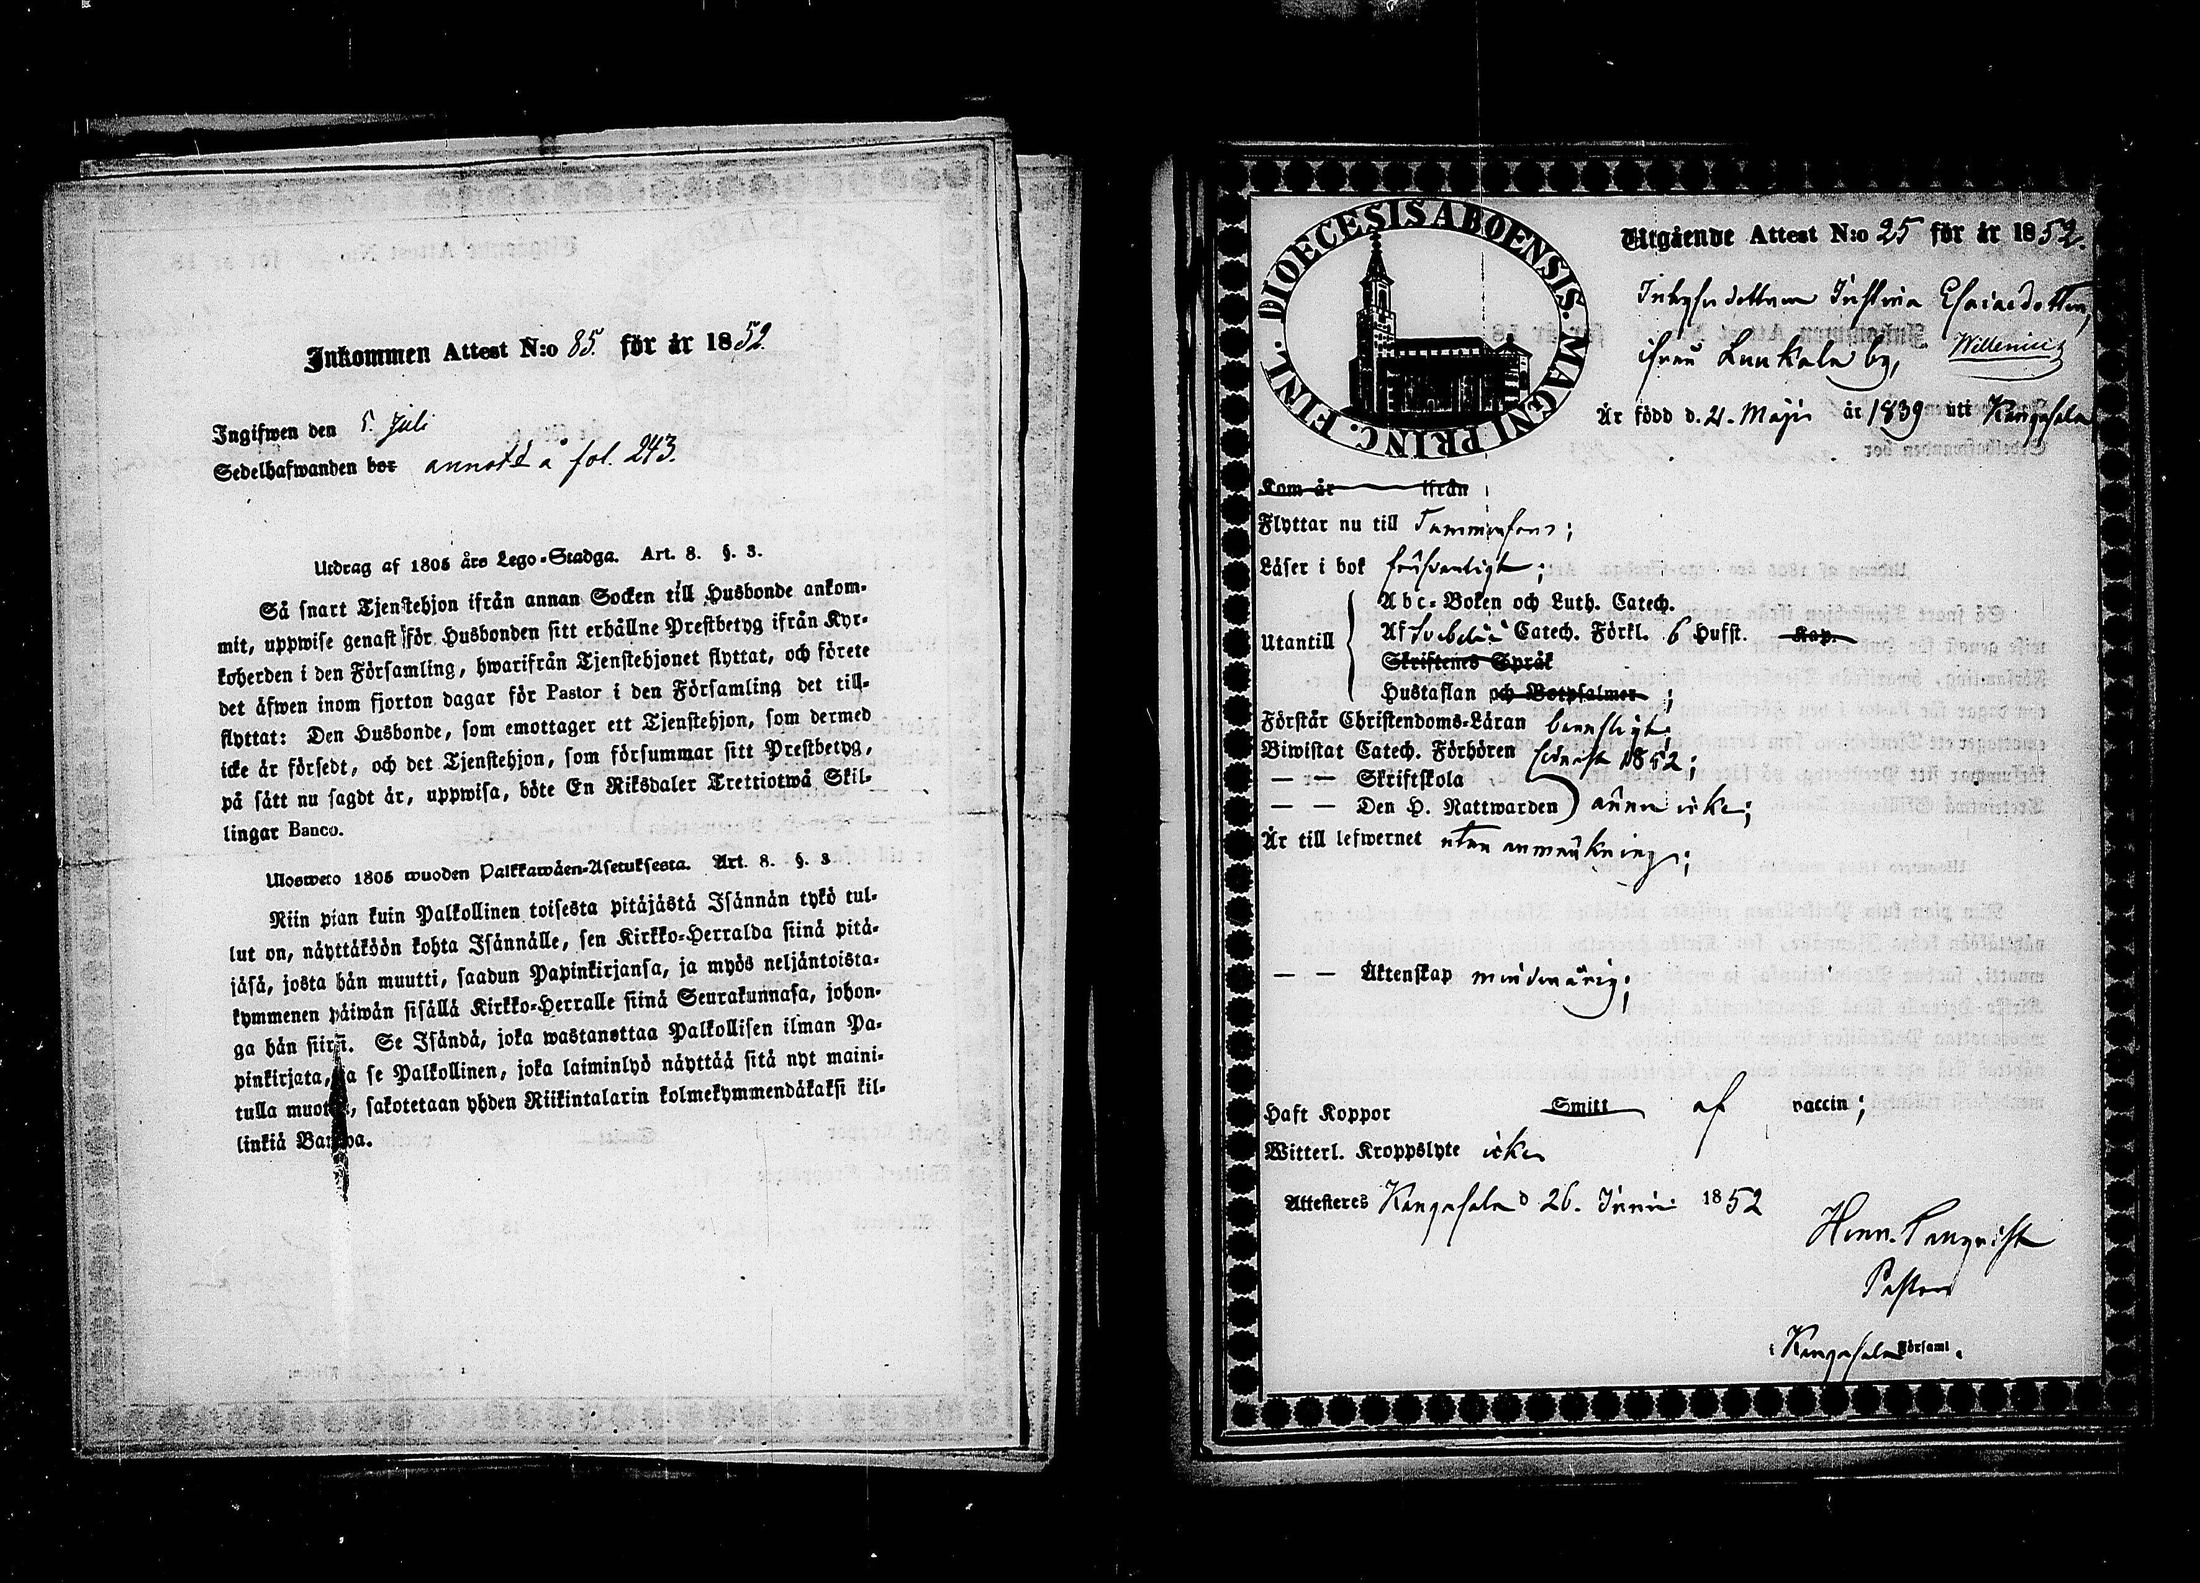 Inkommen Attest N:o 85. för år 1852
Ingifwen den 5. Juli
Sedelhafwanden bor annot:d å fol. 243.
Utdrag af 1805 års Lego-Stadga. Art. 8. §. 3.
Så snart Tjenstehjon ifrån annan Socken till Husbonde ankom-
mit, uppwise genast för Husbonden sitt erhållne Prestbetyg ifrån Kyr-
koherden i den Församling, hwarifrån Tjenstehjonet flyttat, och förete
det äfwen inom fjorton dagar för Pastor i den Församling det till-
flyttat: Den Husbonde, som emottager ett Tjenstehjon, som dermed
icke är försedt, och det Tjenstehjon, som försummar sitt Prestbetyg,
på sätt nu sagdt är, uppwisa, böte En Riksdaler Trettiotwå Skil-
lingar Banco.
Ulosweto 1805 wuoden Palkkawäen-Asetuksesta. Art. 8. §. 3
Niin pian kuin Palkollinen toisesta pitäjästä Isännän tykö tul-
lut on, näyttäköön kohta Isännälle, sen Kirkko-Herralda siinä pitä-
jäsä, josta hän muutti, saadun Papinkirjansa, ja myös neljäntoista-
kymmenen päiwän sisällä Kirkko-Herralle siinä Seurakunnasa, johon-
ga hän siirsi. Se Isändä, joka wastanottaa Palkollisen ilman Pa-
pinkirjata, ja se Palkollinen, joka laiminlyö näyttää sitä nyt maini-
tulla muotoa, sakotetaan yhden Riikintalarin kolmekymmendäkaksi kil-
linkiä Bankoa.
DIOECESIS ABOENSIS. MAGNI PRINC. FINL.
Utgående Attest N:o 25 för år 1852.
Inhysedottren Justina Esaiaedotter,
ifrån Liukala by, Willenius
Är född d. 21. Maji år 1839 uti Kangasala
Kom år ifrån
Flyttar nu till Tammerfors;
Läser i bok försvarligt;
Abc-Boken och Luth. Catech.
Utantill Af Svebelii Catech. Förkl. 6 Hufst. Kap.
Skriftenes Språk
Hustaflan och Botpsalmer;
Förstår Christendoms-Läran
Biwistat Catech. Förhören sednast 1852;
— — Skriftskola
— — Den H. Nattwarden ännu icke;
Är till lefwernet utan anmärkning;
— — Äktenskap minderårig;
Haft Koppor Smitt af vaccin;
Witterl. Kroppslyte icke
Attesteres Kangasala d 26. Junii 1852
Henr.
Pastor
i Kangasala Församl.